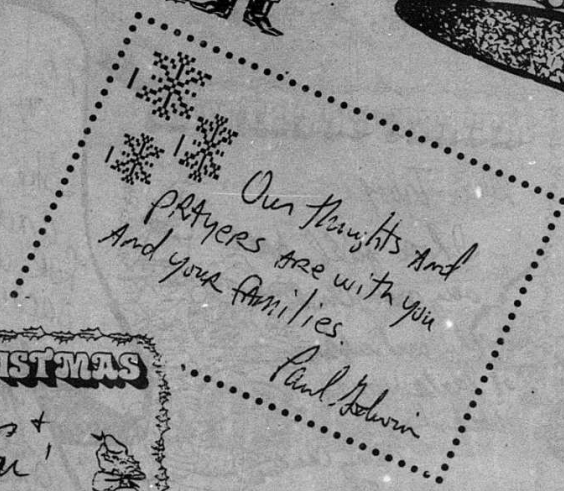 Our thoughts And
PRAyers ARE with you
And your families.
Paul Godwin
ISTMAS
s +
u!